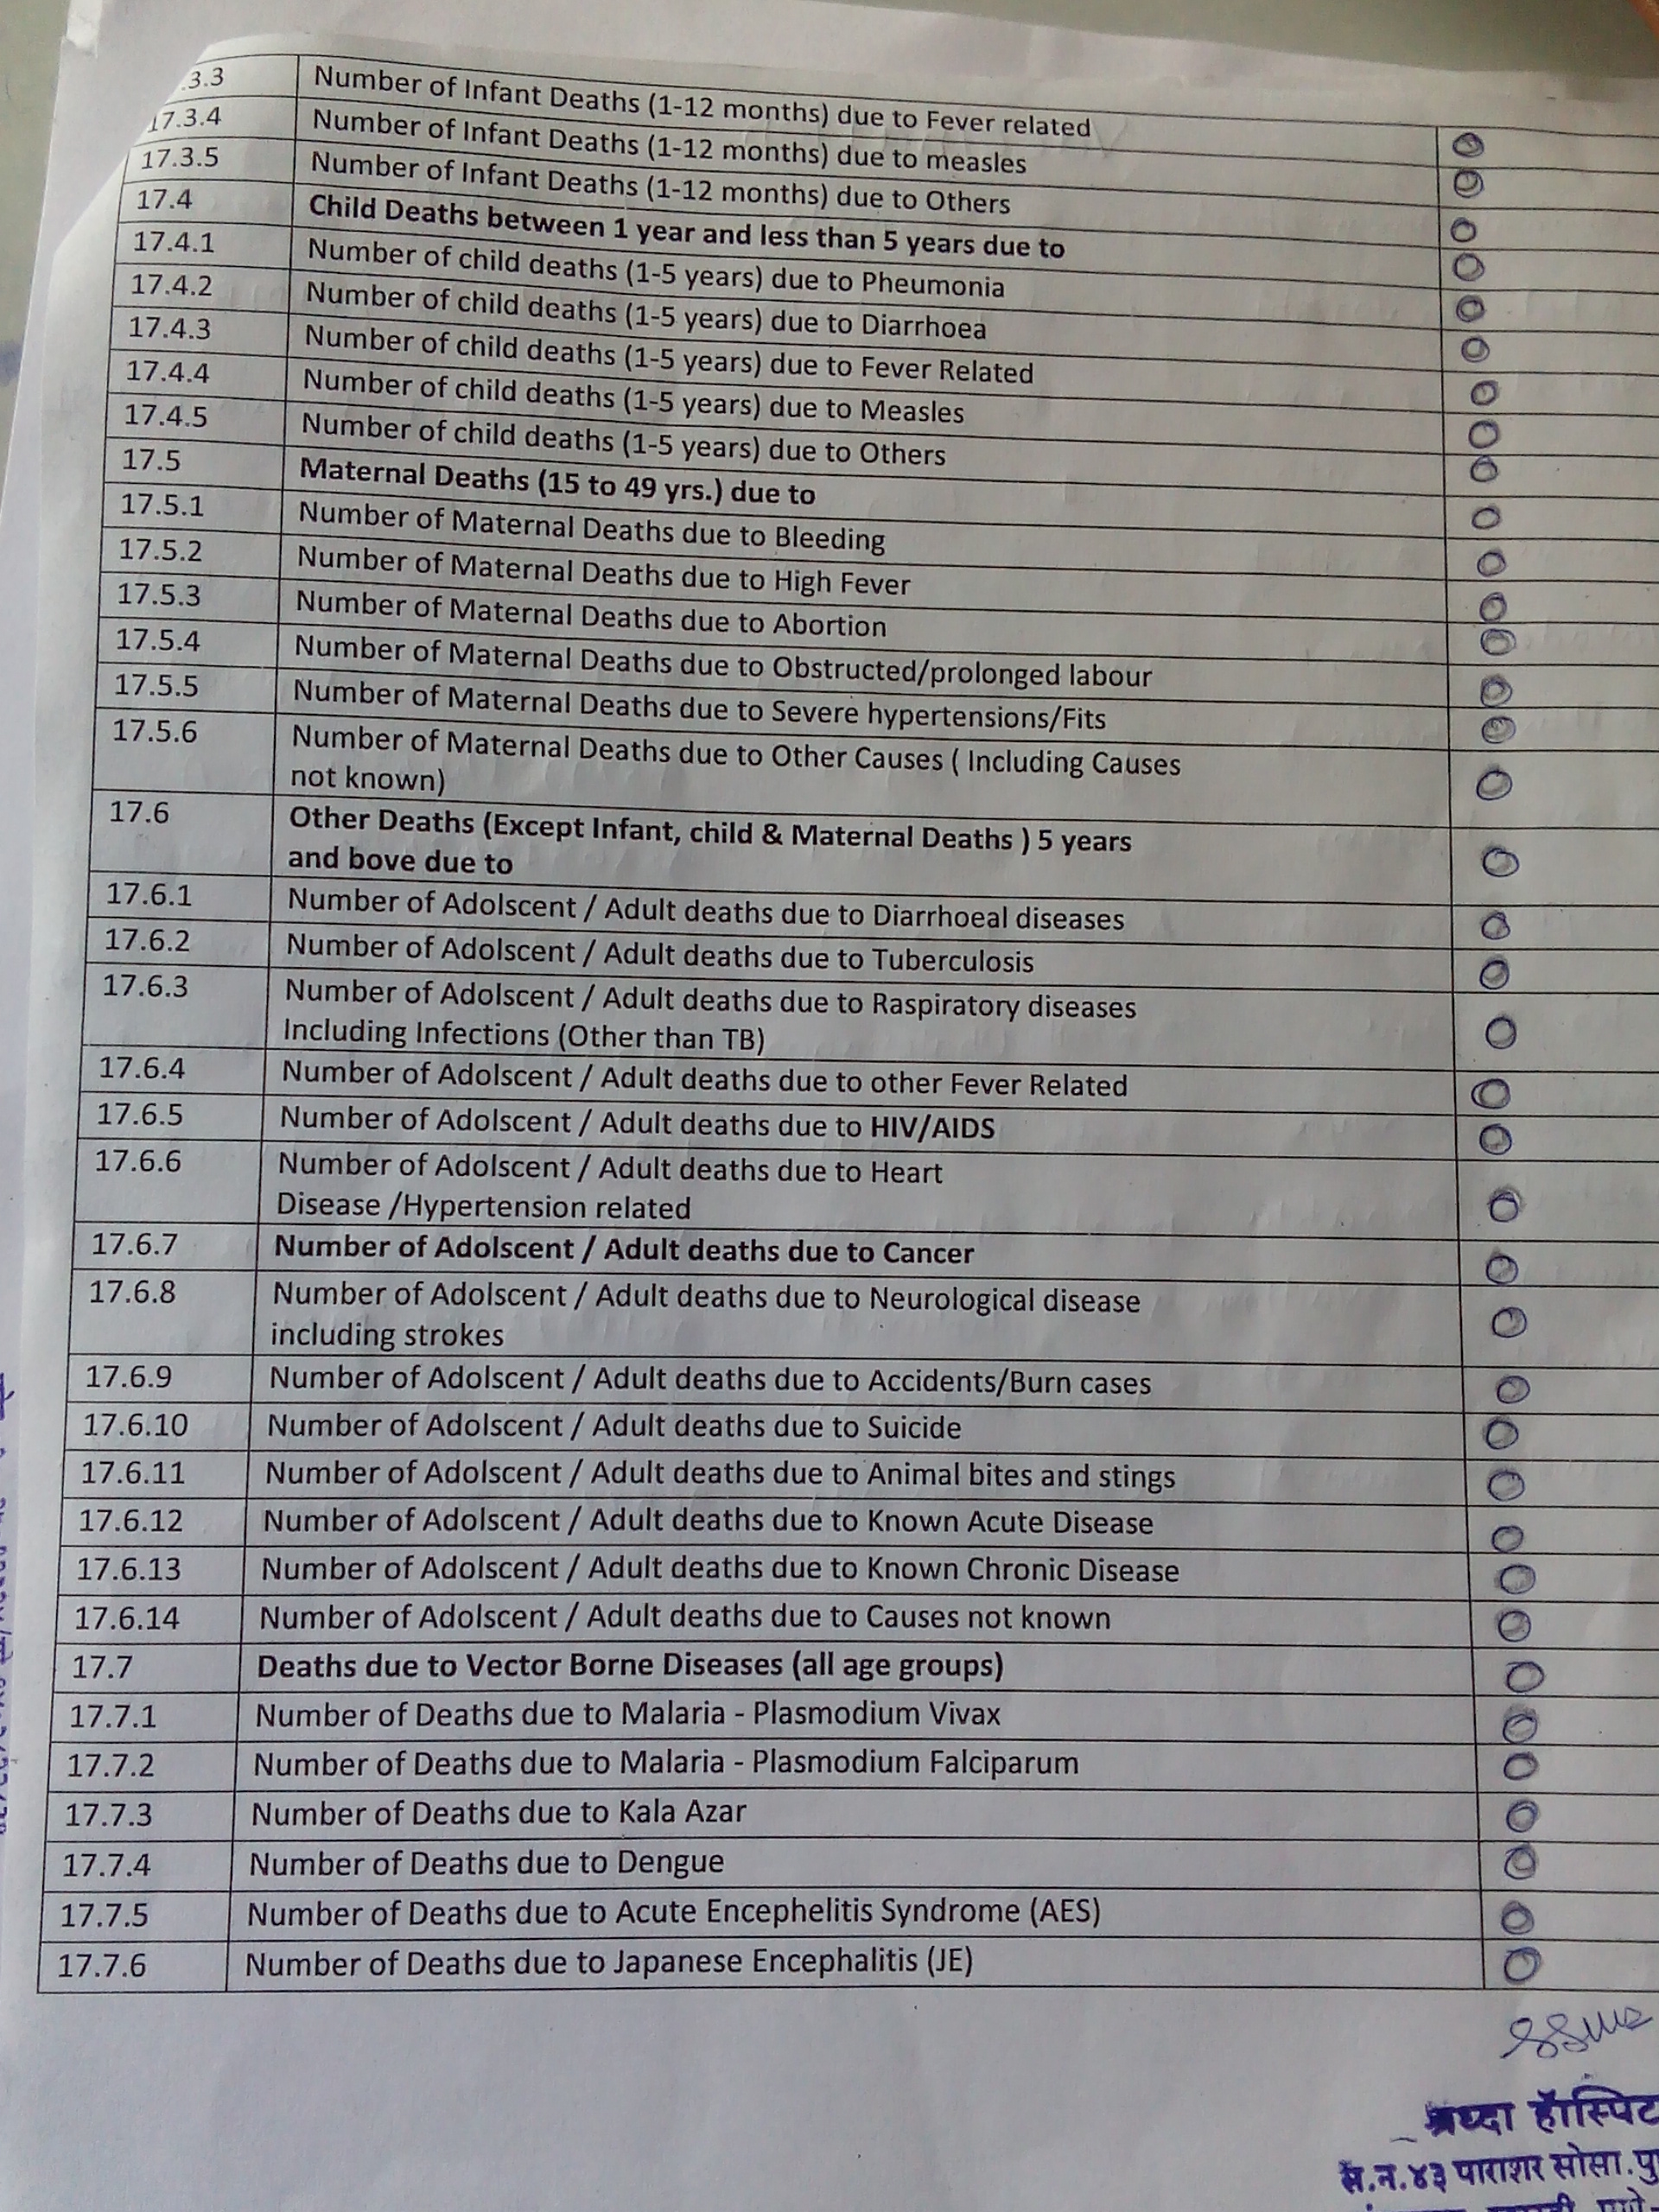 .3.3 Number of Infant Deaths (1-12 months) due to Fever related 0
17.3.4 Number of Infant Deaths (1-12 months) due to measles 0
17.3.5 Number of Infant Deaths (1-12 months) due to Others 0
17.4 Child Deaths between 1 year and less than 5 years due to 0
17.4.1 Number of child deaths (1-5 years) due to Pheumonia 0
17.4.2 Number of child deaths (1-5 years) due to Diarrhoea 0
17.4.3 Number of child deaths (1-5 years) due to Fever Related 0
17.4.4 Number of child deaths (1-5 years) due to Measles 0
17.4.5 Number of child deaths (1-5 years) due to Others 0
17.5 Maternal Deaths (15 to 49 yrs.) due to 0
17.5.1 Number of Maternal Deaths due to Bleeding 0
17.5.2 Number of Maternal Deaths due to High Fever 0
17.5.3 Number of Maternal Deaths due to Abortion 0
17.5.4 Number of Maternal Deaths due to Obstructed/prolonged labour 0
17.5.5 Number of Maternal Deaths due to Severe hypertensions/Fits 0
17.5.6 Number of Maternal Deaths due to Other Causes ( Including Causes
not known) 0
17.6 Other Deaths (Except Infant, child & Maternal Deaths ) 5 years
and bove due to 0
17.6.1 Number of Adolscent / Adult deaths due to Diarrhoeal diseases 0
17.6.2 Number of Adolscent / Adult deaths due to Tuberculosis 0
17.6.3 Number of Adolscent / Adult deaths due to Raspiratory diseases
Including Infections (Other than TB) 0
17.6.4 Number of Adolscent / Adult deaths due to other Fever Related 0
17.6.5 Number of Adolscent / Adult deaths due to HIV/AIDS 0
17.6.6 Number of Adolscent / Adult deaths due to Heart
Disease /Hypertension related 0
17.6.7 Number of Adolscent / Adult deaths due to Cancer 0
17.6.8 Number of Adolscent / Adult deaths due to Neurological disease
including strokes 0
17.6.9 Number of Adolscent / Adult deaths due to Accidents/Burn cases 0
17.6.10 Number of Adolscent / Adult deaths due to Suicide 0
17.6.11 Number of Adolscent / Adult deaths due to Animal bites and stings 0
17.6.12 Number of Adolscent / Adult deaths due to Known Acute Disease 0
17.6.13 Number of Adolscent / Adult deaths due to Known Chronic Disease 0
17.6.14 Number of Adolscent / Adult deaths due to Causes not known 0
17.7 Deaths due to Vector Borne Diseases (all age groups) 0
17.7.1 Number of Deaths due to Malaria - Plasmodium Vivax 0
17.7.2 Number of Deaths due to Malaria - Plasmodium Falciparum 0
17.7.3 Number of Deaths due to Kala Azar 0
17.7.4 Number of Deaths due to Dengue 0
17.7.5 Number of Deaths due to Acute Encephelitis Syndrome (AES) 0
17.7.6 Number of Deaths due to Japanese Encephalitis (JE) 0
हॅास्पिट
स.न.४३ पाराशर सोसा.पु